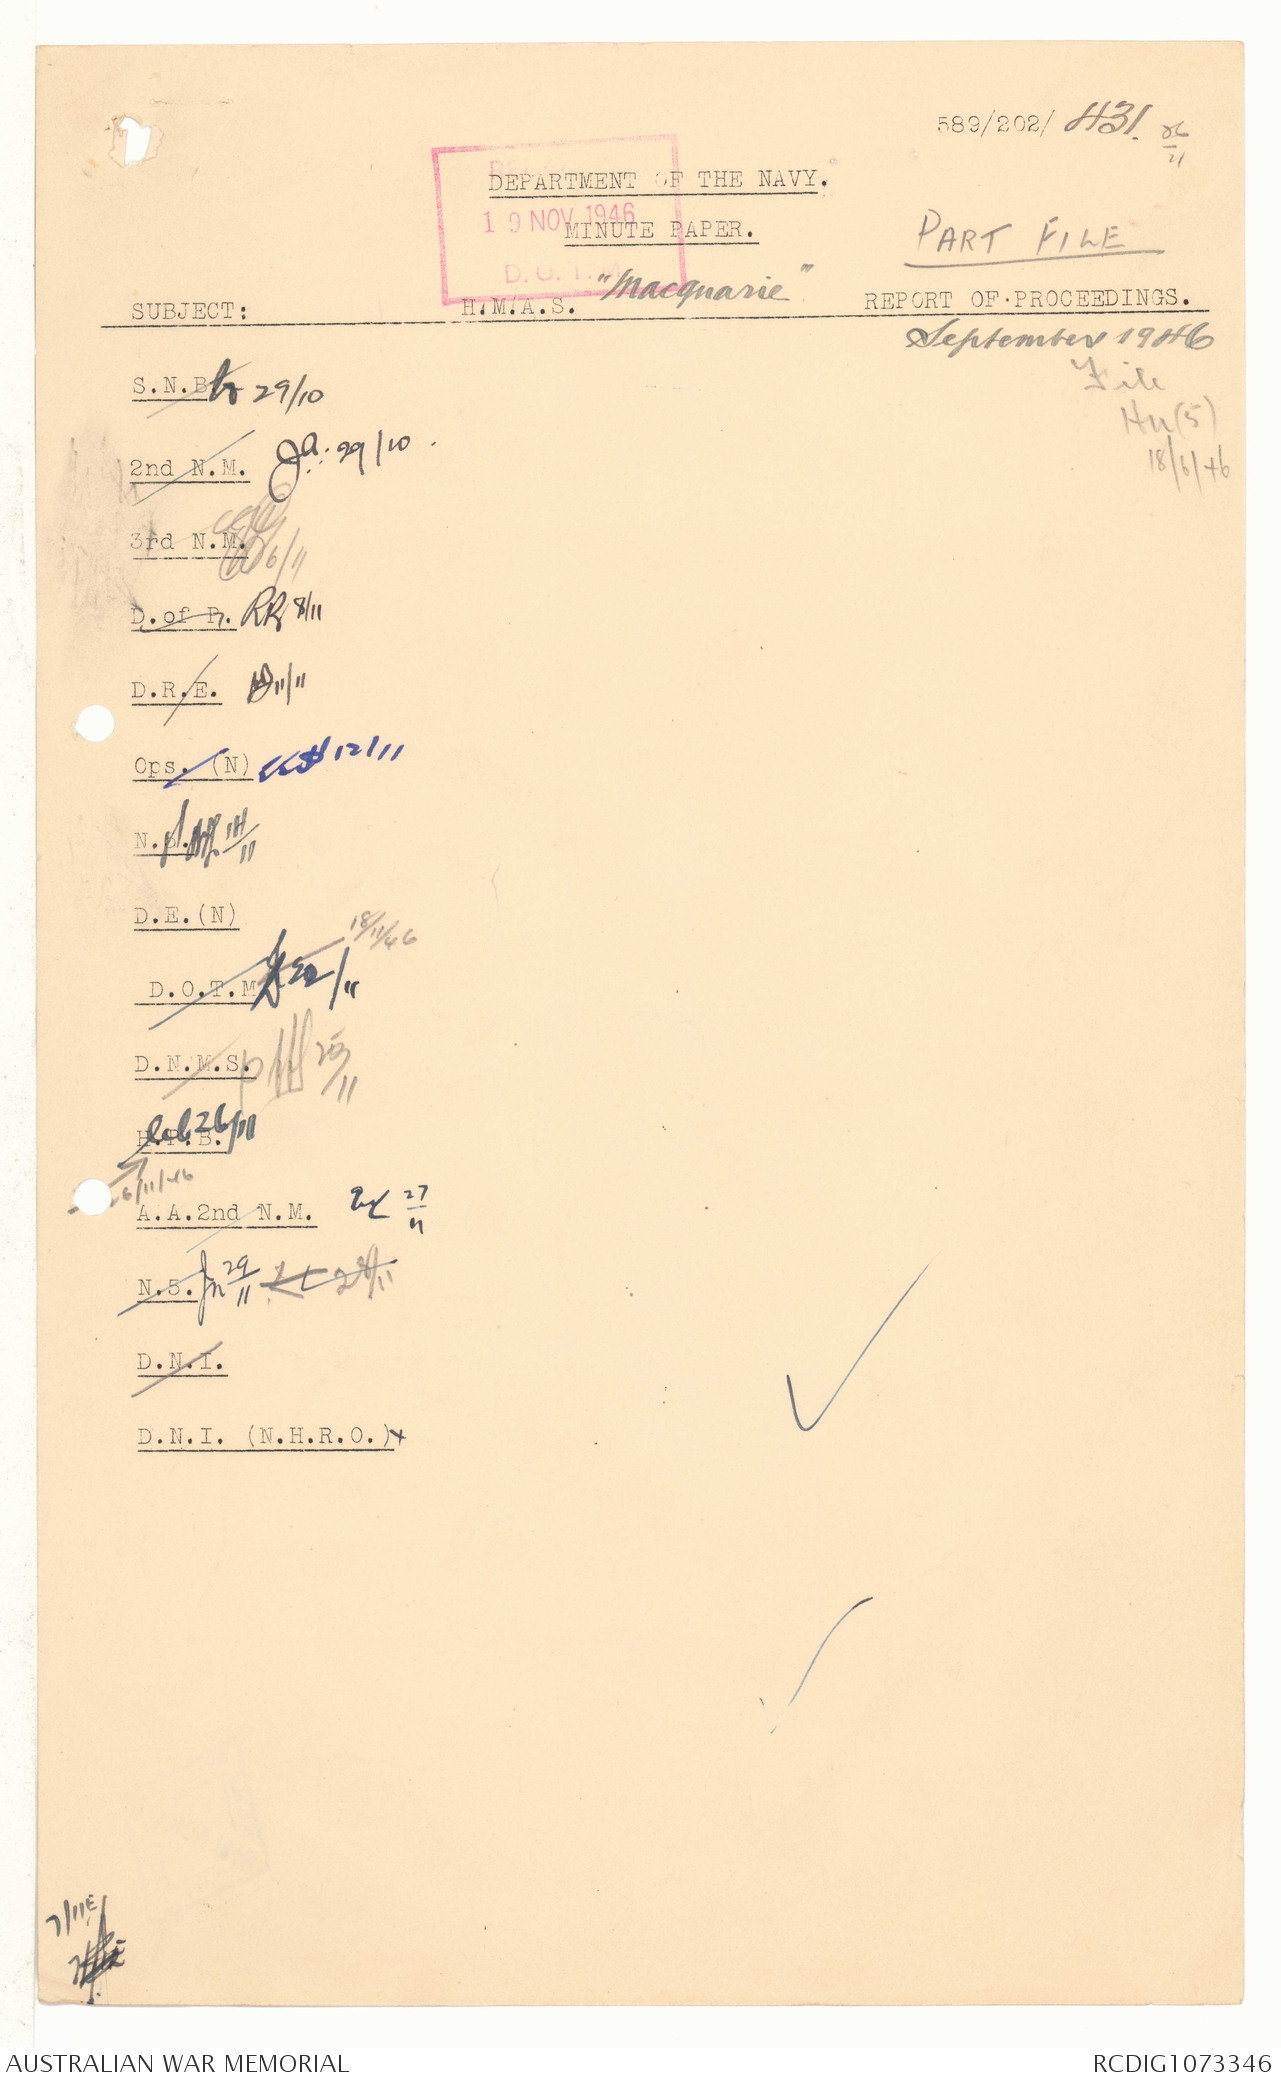 589/202/431. 26/11
DEPARTMENT OF THE NAVY.
10 NOV 1946
MINUTE PAPER.
PART FILE
D.O.T.M
SUBJECT: H.M.A.S. "Macquarie" REPORT OF PROCEEDINGS.
September 1946
File
S.N.B 29/10
2nd N.M. 29/10.
3rd N.M. 6/11
D. of P. 8/11
D.R.E. 11/11
Ops. (N) 12/11
N. 14/11
D.E.(N)
18/11/46
D.O.T.M 22/11
D.N.M.S. 25/11
H.P.B. 26/11
6/11/46
A.A.2nd N.M. 27/11
N.5. 29/11 28/11
D.N.I.
D.N.I. (N.H.R.O.)x
7/11
AUSTRALIAN WAR MEMORIAL RCDIG1073346